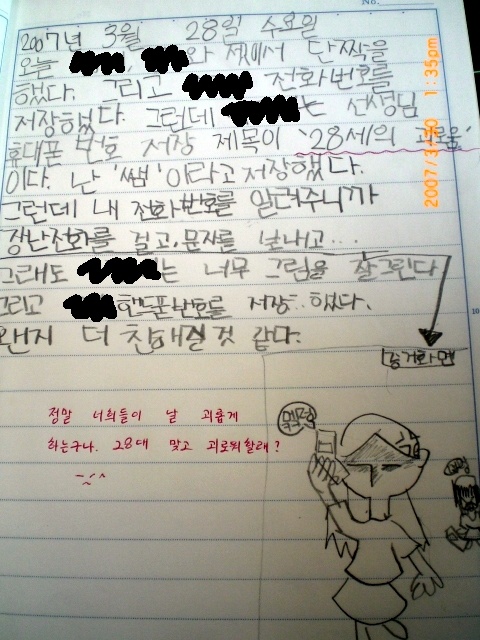 No.
2007년 3월 28일 수요일
오늘 와 셋에서 단짝을
했다. 그리고 전화번호를
저장했다. 그런데 는 선생님
휴대폰 번호 저장 제목이 '28세의 괴로움'
이다. 난 '쌤'이라고 저장했다.
그런데 내 전화번호를 알려주니까
장난전화를 걸고, 문자를 보내고...
그래도 는 너무 그림을 잘그린다
그리고 핸드폰번호를 저장..했다.
왠지 더 친해질 것 같다.
증거화면
정말 너희들이 날 괴롭게
하는구나. 28대 맞고 괴로워할래?
2007/3/30 1:35pm